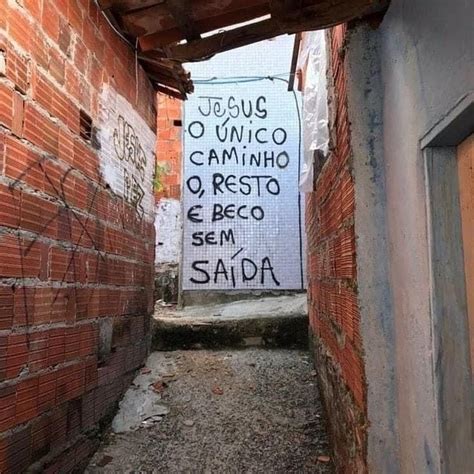 JESUS
O ÚNICO
CAMINHO
O, RESTO
E BECO
SEM
SAÍDA